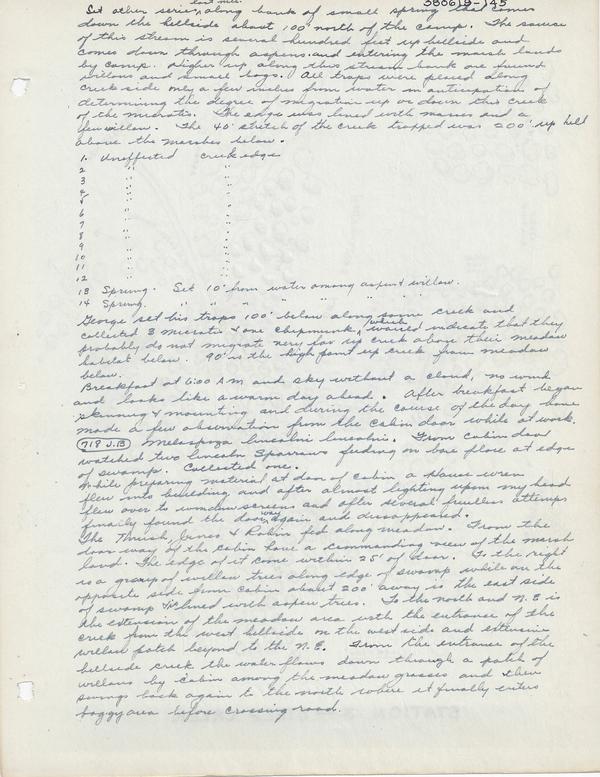 last nite. 580619-145
Set other series along bank of small spring that comes
down the hillside about 100' north of the camp. The source
of this stream is several hundred feet up hillside and
comes down through aspens and entering the marsh lands
by camp. Higher up along this stream bank are found
willows and small logs. All traps were placed along
creekside only a few inches from water in anticipation of
determining the degree of migration up or down this creek
of the microtis. The edge was lined with masses and a
few willow. The 40' stretch of the creek trapped was 200' up hill
above the marshes below.
1. Uneffected creek edge
2 " "
3 " "
4 " "
5 " "
6 " "
7 " "
8 " "
9 " "
10 " "
11 " "
12 " "
13 Sprung. Set 10' from water among aspen & willow.
14 Sprung. " " " " " " "
George set his traps 100' below along same creek and
collected 3 microtis & one chipmunk, which would indicate that they
probably do not migrate very far up creek above their meadow
habitat below. 90' is the high point up creek from meadow
below.
Breakfast at 6:00 A.M and sky without a cloud, no wind
and looks like a warm day ahead. After breakfast began
skinning & mounting and during the course of the day have
made a few observation from the cabin door while at work.
718 J.B Melospiza lincolni lincolni. From cabin door
watched two Lincoln Sparrows feeding on bare place at edge
of swamp. Collected one.
While preparing material at door of cabin a House wren
flew into building and after almost lighting upon my head
flew over to window screens and after several fruitless attemps
finally found the door way again and disappeared.
The Thrush, Junco & Robin fed along meadow. From the
door way of the cabin have a commanding view of the marsh
land. The edge of it come within 25' of door. To the right
is a group of willow trees along edge of swamp while on the
opposite side from cabin about 200' away is the east side
of swamp lined with aspen trees. To the north and N.E is
the extension of the meadow area with the entrance of the
creek from the west hillside on the west side and extensive
willow patch beyond to the N.E. From the entrance of the
hillside creek the water flows down through a patch of
willows by cabin among the meadow grasses and then
swings back again to the north where it finally enters
boggy area before crossing road.